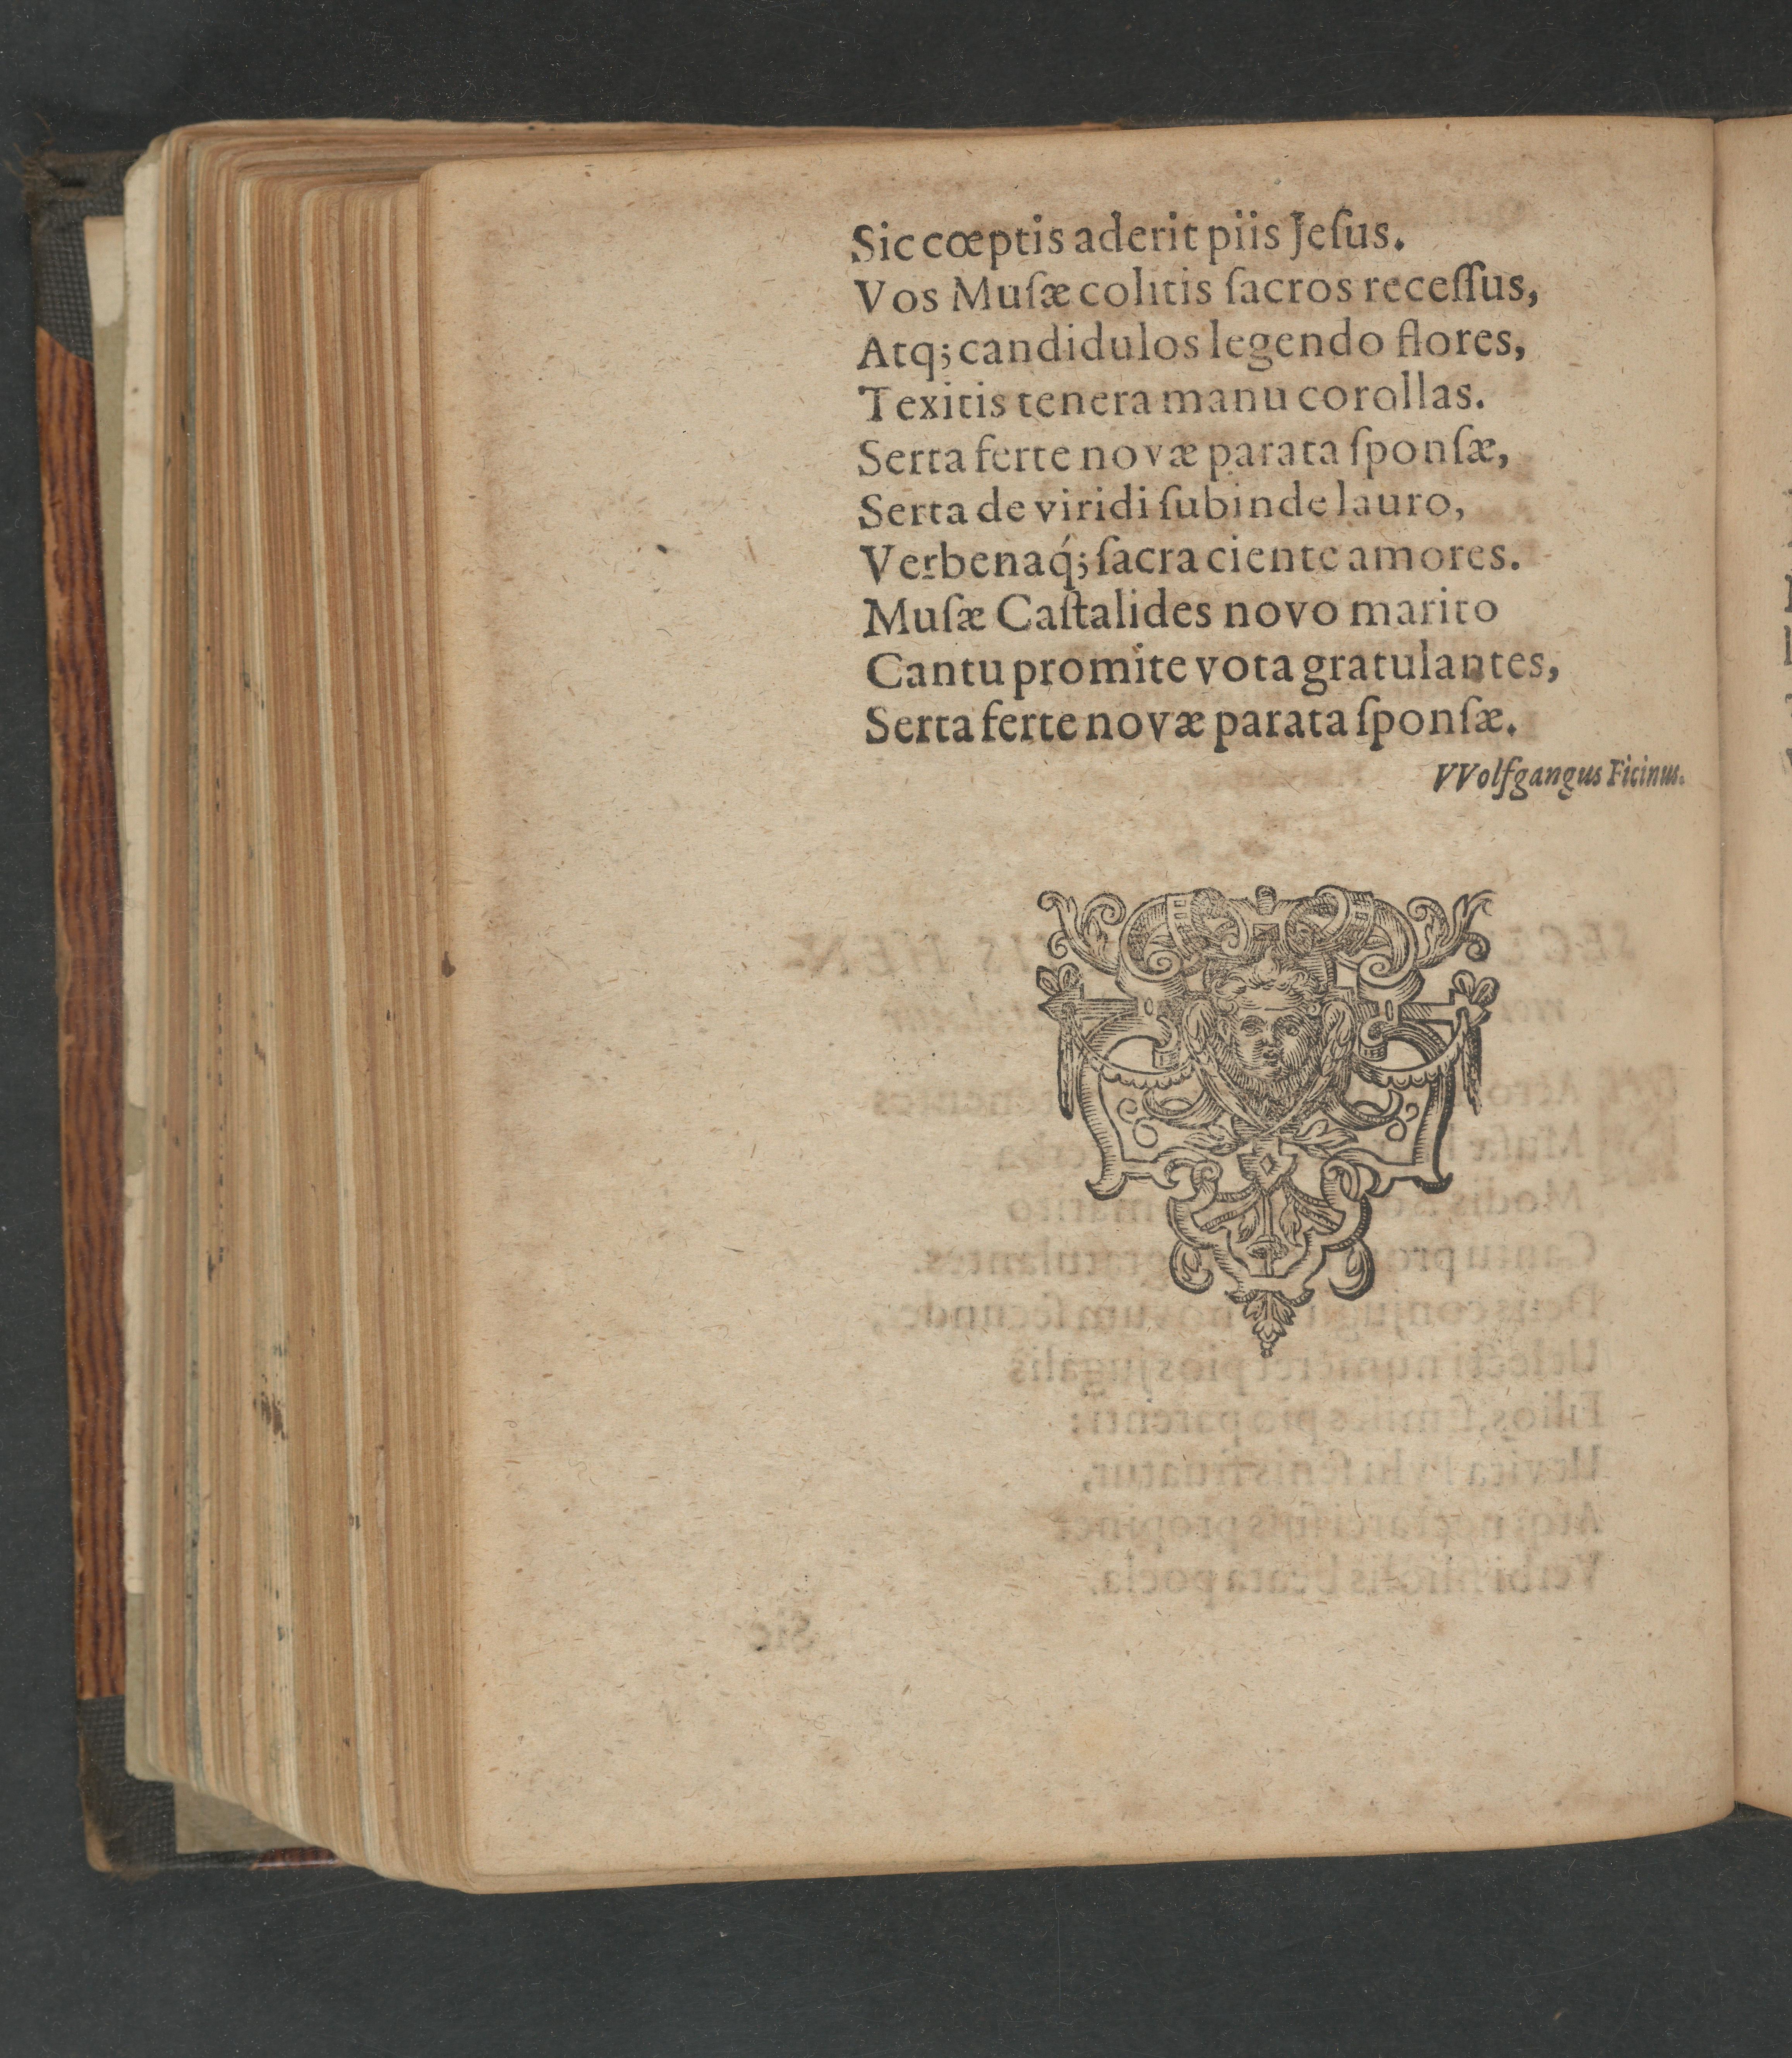 Sic cœptis aderit piis Jeſus.
Vos Muſæ colitis ſacros receſſus,
Atq; candidulos legendo flores,
Texitis tenera manu corollas.
Serta ferte novæ parata ſponſæ,
Serta de viridi ſubinde lauro,
Verbenaq́; ſacra ciente amores.
Muſæ Caſtalides novo marito
Cantu promite vota gratulantes,
Serta ferte novæ parata ſponſæ.
VVolfgangus Ficinus.